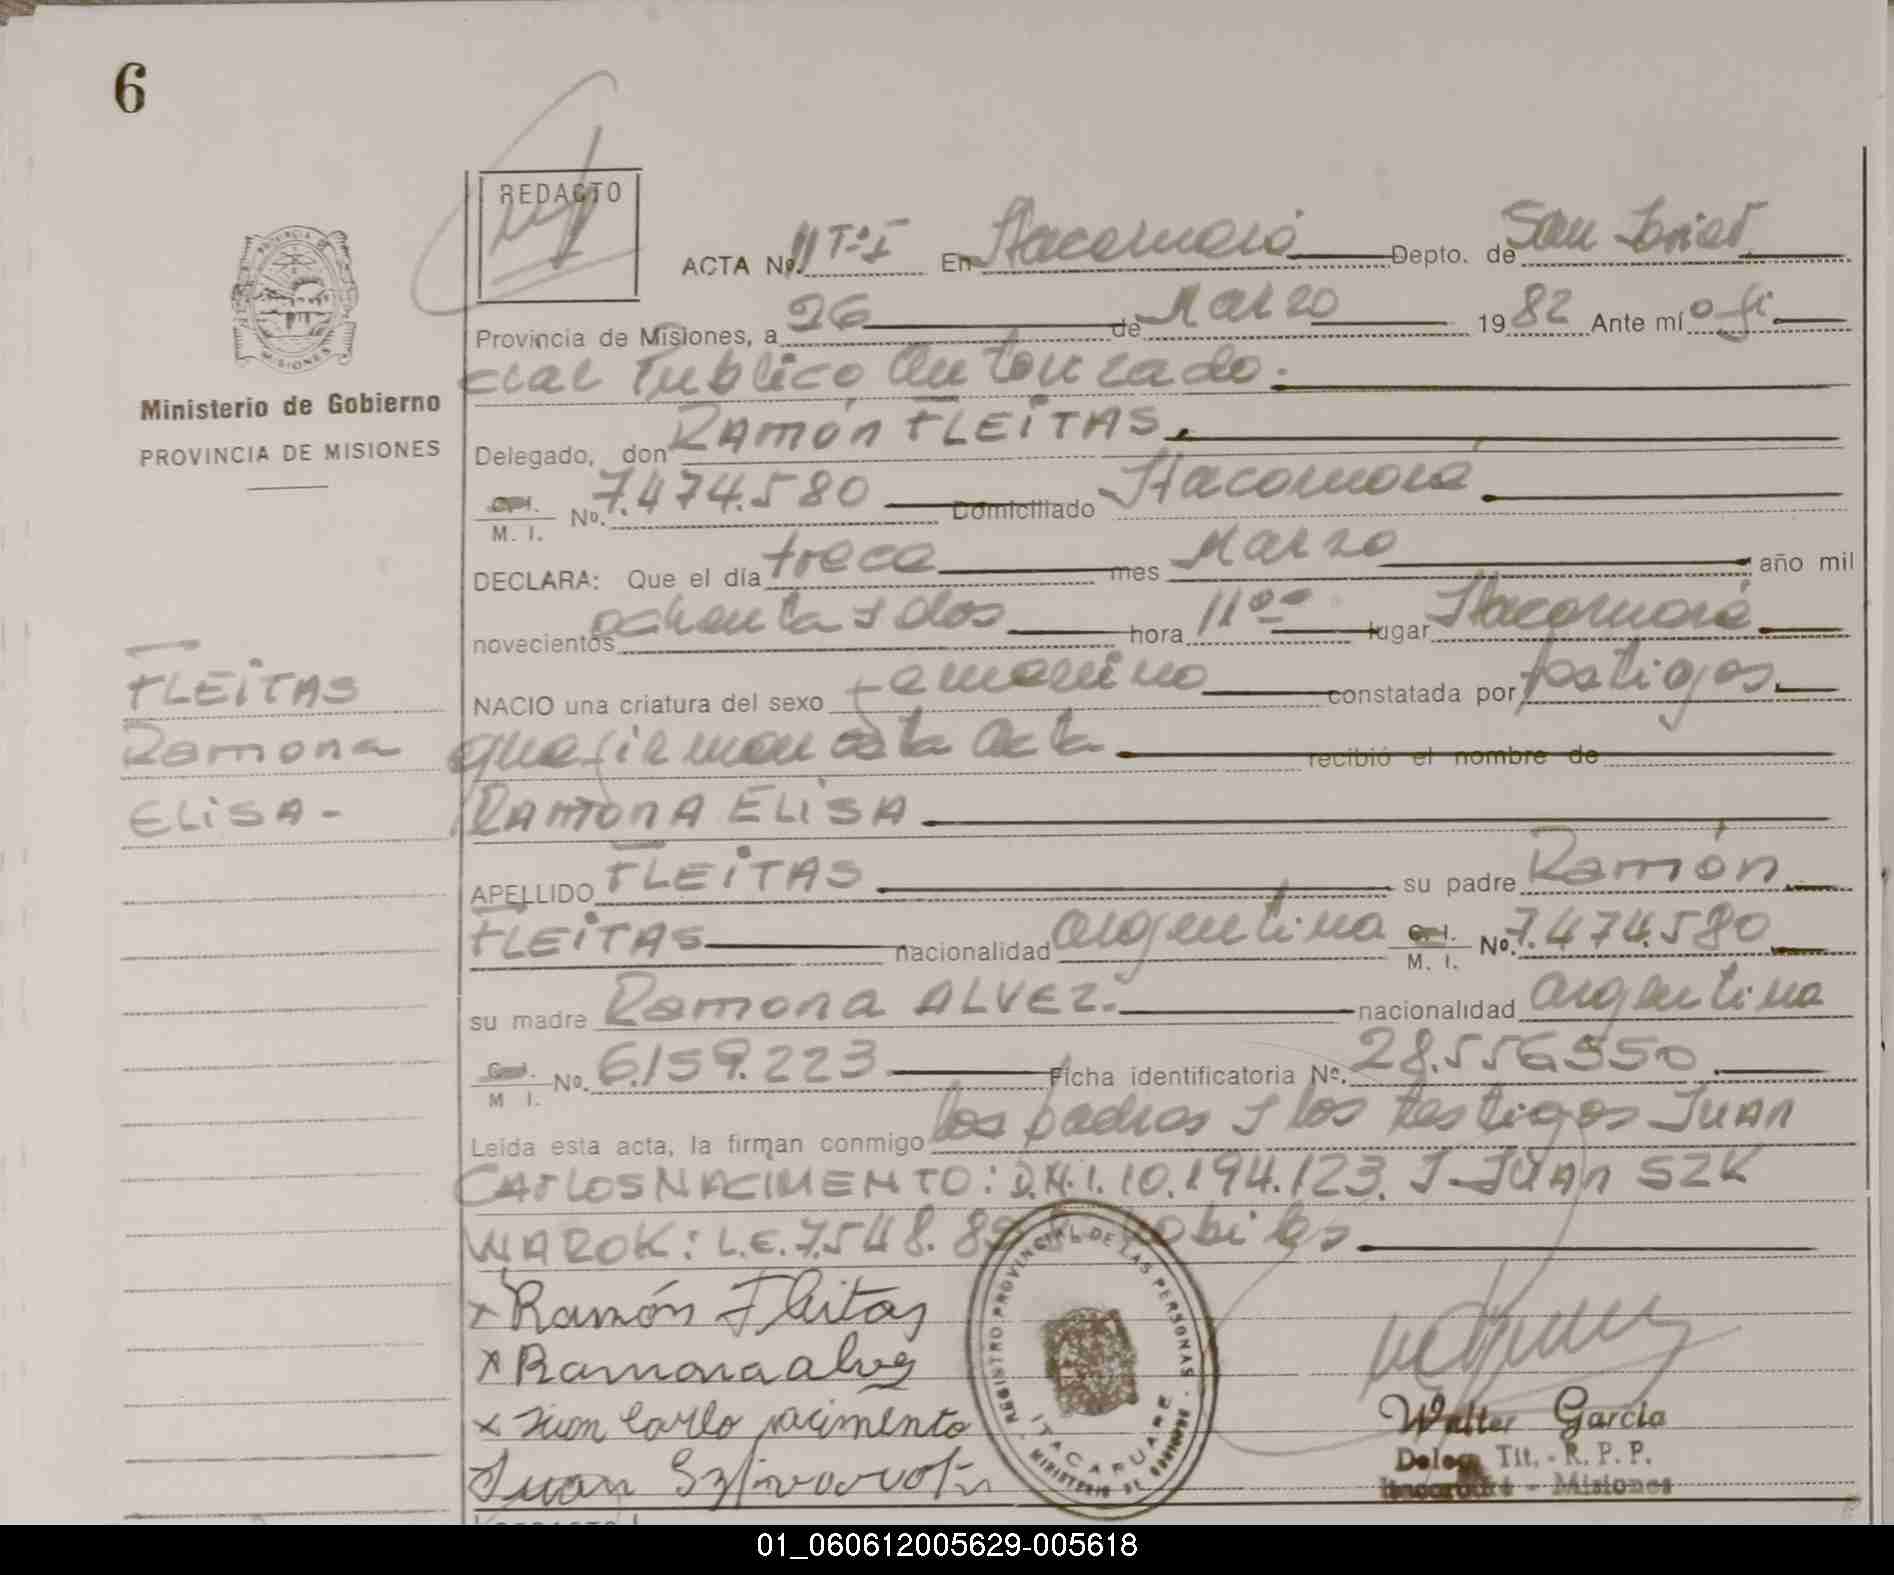 6
REDACTO
ACTA Nº. 11 Tº I En Itacaruaré Depto. de San Javier
Provincia de Misiones, a 26 de Marzo 1982 Ante mí ofi
cial Publico Autorizado.
Ministerio de Gobierno
PROVINCIA DE MISIONES
Delegado, don RAMÓN FLEITAS.
C.I. M. I. Nº. 7.474.580 Domiciliado Itacaruaré
DECLARA: Que el día trece mes Marzo año mil
novecientos ochenta y dos hora 11ºº lugar Itacaruaré
NACIO una criatura del sexo femenino constatada por testigos
que firman esta acta recibió el nombre de
RAMONA ELISA
FLEITAS
Ramona
ELISA-
APELLIDO FLEITAS su padre Ramón
FLEITAS nacionalidad argentina C. I. M. I. Nº. 7.474.580
su madre Ramona ALVEZ. nacionalidad argentina
C.I. M I. Nº. 6.159.223 Ficha identificatoria Nº. 28.556550
Leída esta acta, la firman conmigo los padres y los testigos JUAN
CARLOS NACIMENTO: D.N.I. 10.194.123. Y JUAN SZK
WAROK: L.E. 7.548.89 habiles
x Ramón Fleitas
x Ramona alvez
x Juan Carlo nacimento
Juan
REGISTRO PROVINCIAL DE LAS PERSONAS - MINISTERIO DE GOBIERNO
ITACARUARE
PROVINCIA DE MISIONES
Walter García
Deleg. Tit. - R. P. P.
Itacaruaré - Misiones
01_060612005629-005618